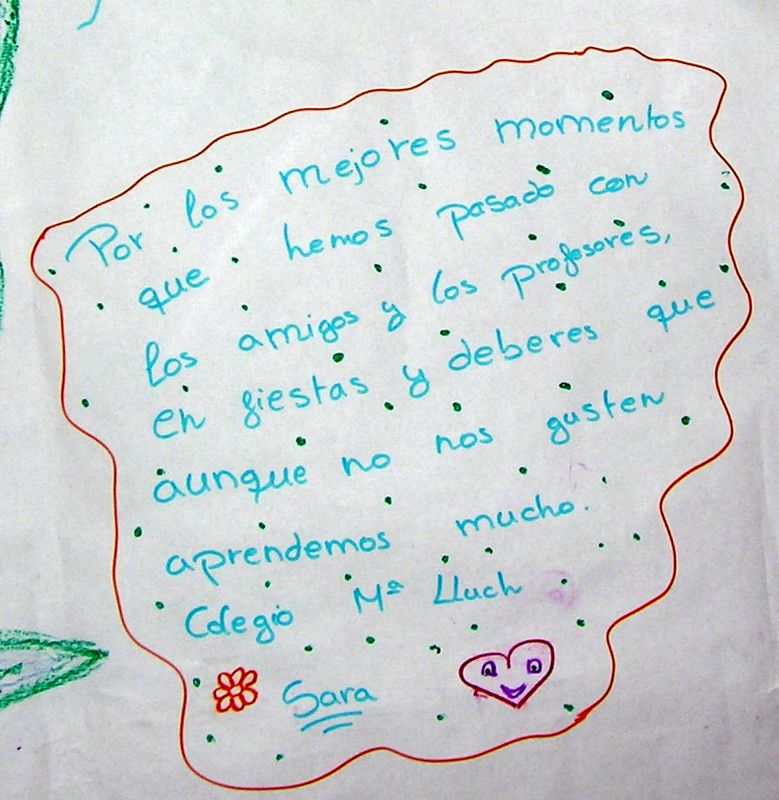 Por los mejores momentos
que hemos pasado con
los amigos y los profesores,
en fiestas y deberes que
aunque no nos gusten
aprendemos mucho.
Colegio Mª Lluch
Sara